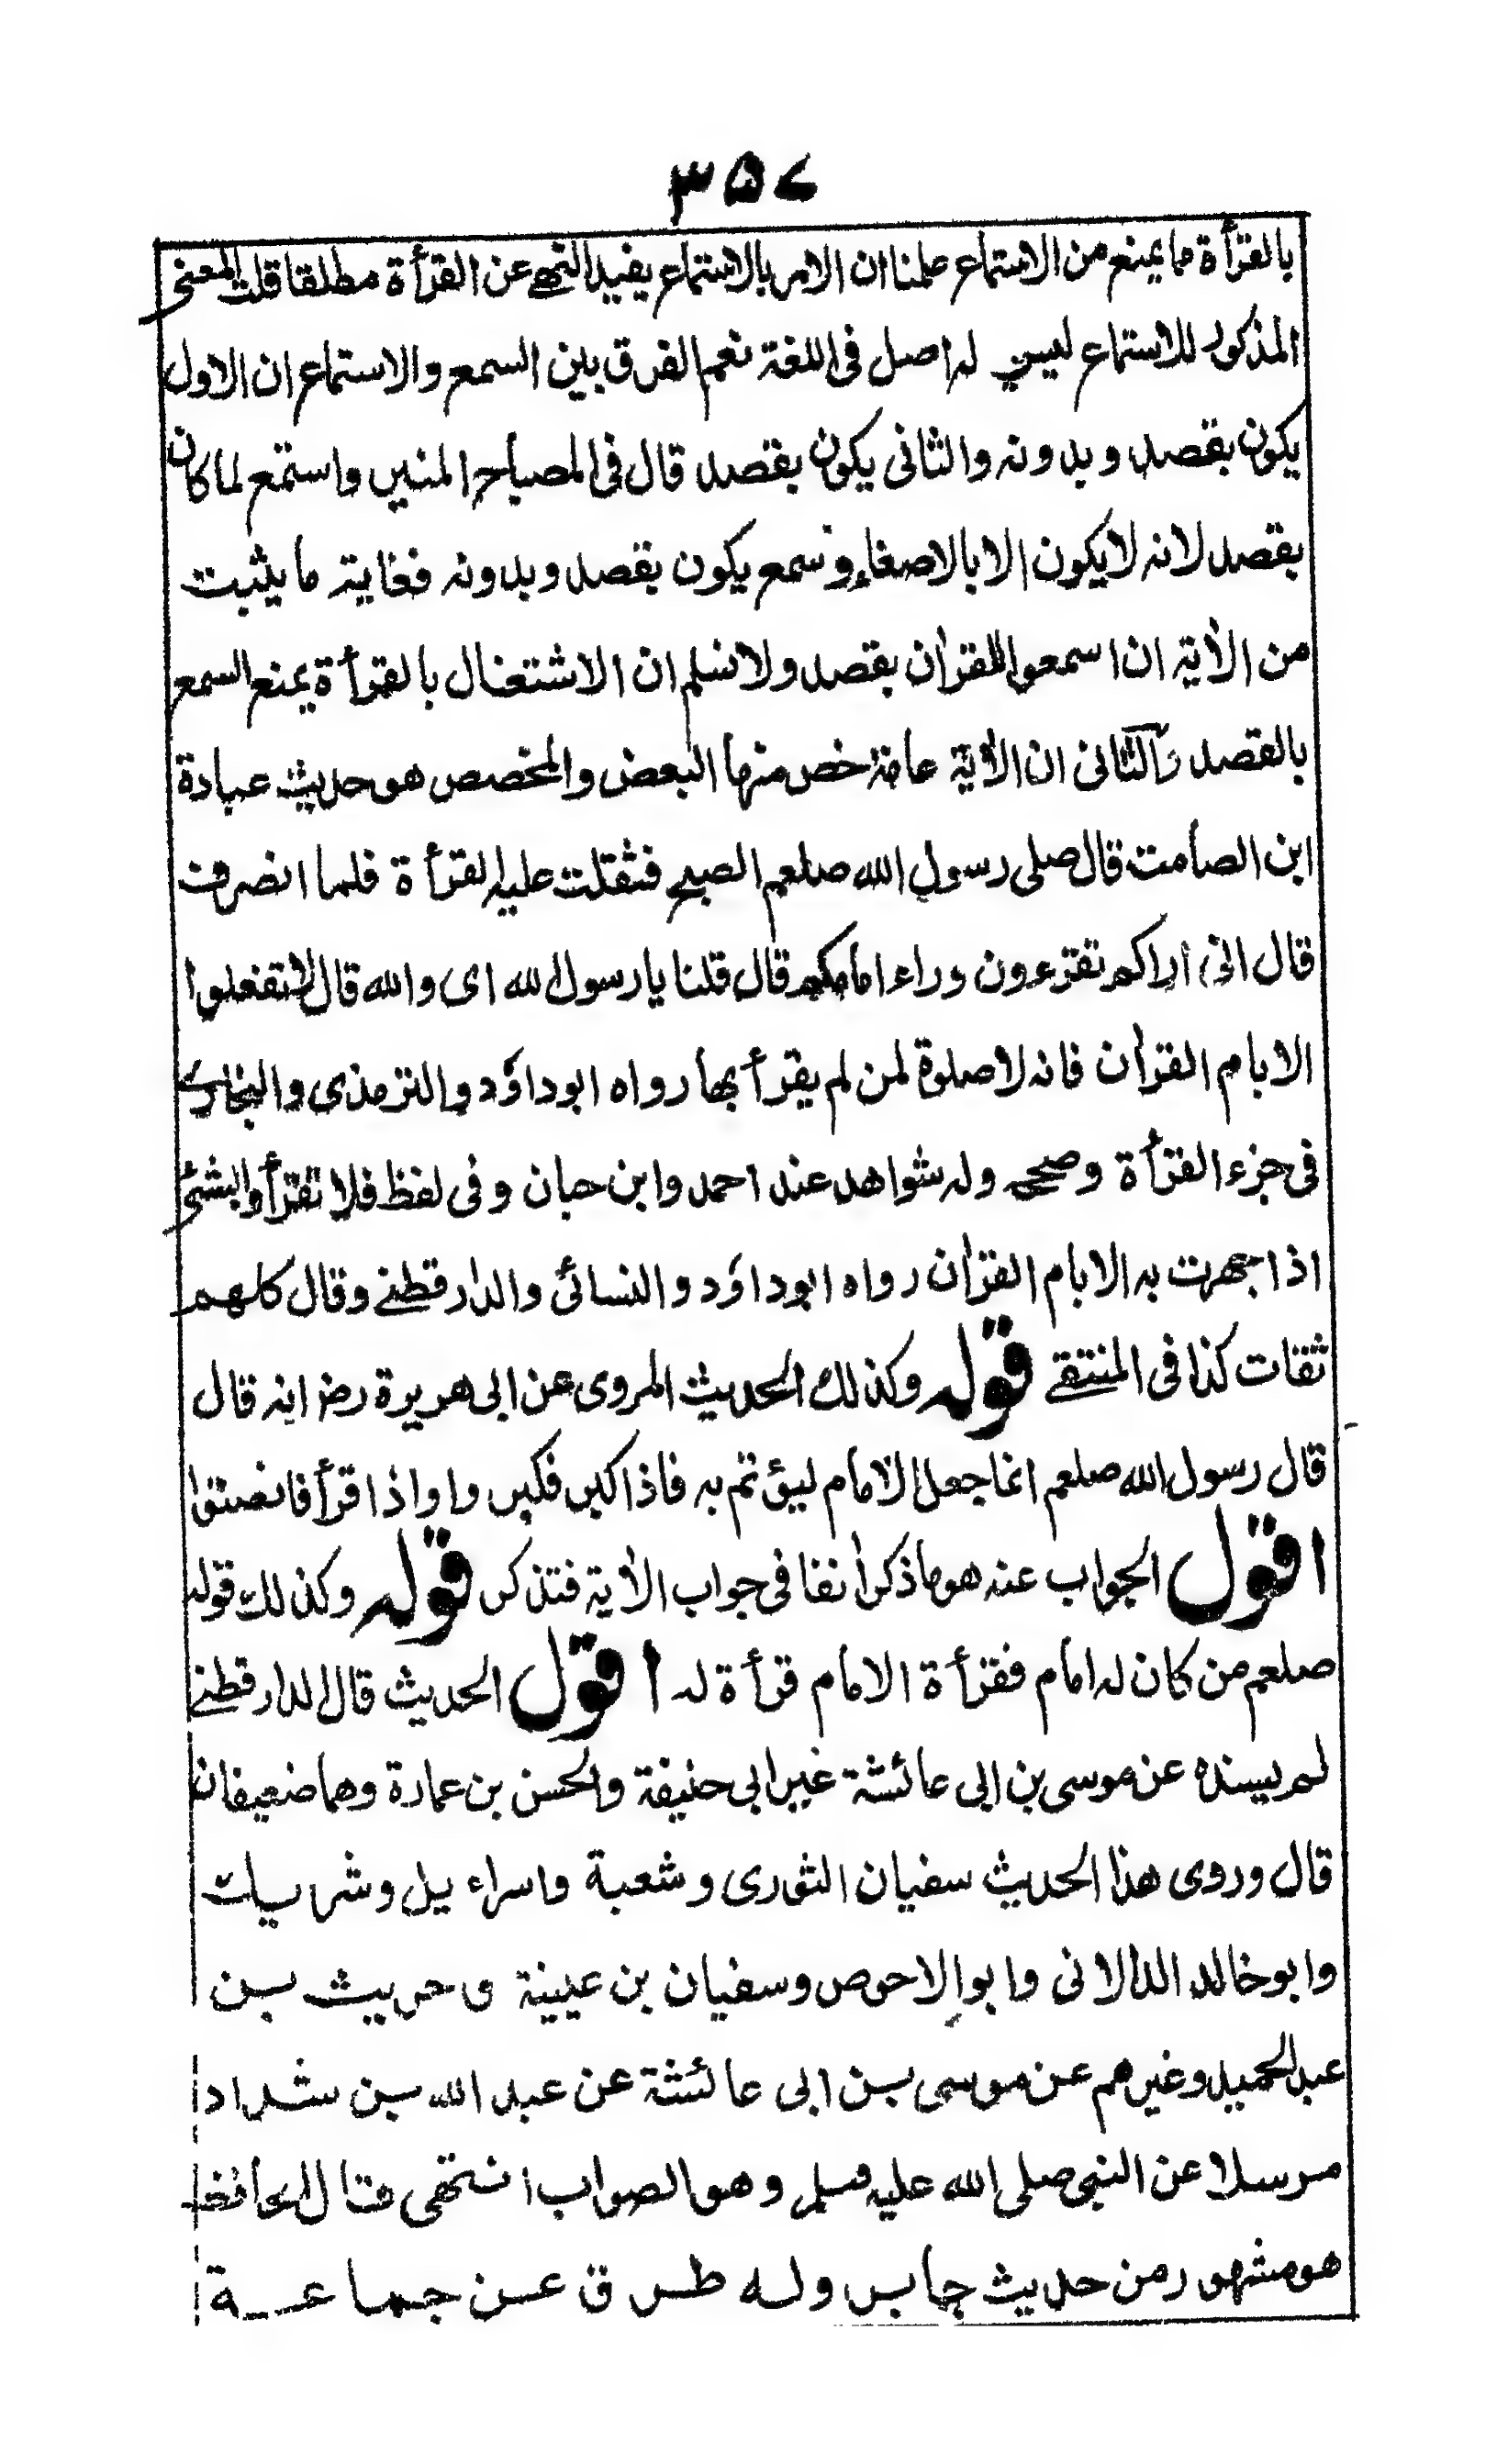 ٣٥٧
بالقرأة مما يمنع من الاستماع علمنا ان الامر بالاستماع يفيد النهي عن القرأة مطلقا قلت المعنى
المذكور للاستماع ليس له اصل فى اللغة نعم الفرق بين السمع والاستماع ان الاول
يكون بقصد وبدونه والثانى يكون بقصد قال فى المصباح المنير واستمع لما كان
بقصد لانه لا يكون الا بالاصغاء وسمع يكون بقصد وبدونه فغاية ما يثبت
من الأية ان اسمعوا القرأن بقصد ولا نسلم ان الاشتغال بالقرأة يمنع السمع
بالقصد والثانى ان الأية عامة خص منها البعض والمخصص هو حديث عبادة
ابن الصامت قال صلى رسول الله صلعم الصبح فثقلت عليه القرأة فلما انصرف
قال انى اراكم تقرءون وراء امامكم قال قلنا يا رسول الله اى والله قال لا تفعلوا
الا بام القرأن فانه لا صلوة لمن لم يقرأ بها رواه ابو داؤد والترمذى والبخارى
فى جزء القرأة وصححه وله شواهد عند احمد وابن حبان وفى لفظ فلا تقرأوا بشئ
اذا جهرت به الا بام القرأن رواه ابو داؤد والنسائى والدارقطنے وقال كلهم
ثقات كذا فى المنتقے قوله وكذلك الحديث المروى عن ابى هريرة رض انه قال
قال رسول الله صلعم انما جعل الامام ليؤتم به فاذا كبر فكبروا واذا قرأ فانصتوا
اقول الجواب عنه هو ما ذكر أنفا فى جواب الأية فتذكر قوله وكذلك قوله
صلعم من كان له امام فقرأة الامام قرأة له اقول الحديث قال الدارقطنے
لم يسنده عن موسى بن ابى عائشة غير ابى حنيفة والحسن بن عمارة وهما ضعيفان
قال وروى هذا الحديث سفيان الثورى وشعبة واسراءيل وشريك
وابو خالد الدالانى وابو الاحوص وسفيان بن عيينة وحريث بن
عبد الحميد وغيرهم عن موسى بن ابى عائشة عن عبد الله بن شداد
مرسلا عن النبى صلى الله عليه وسلم وهو الصواب انتهى قال الحافظ
هو مشهور من حديث جابر وله طرق عن جماعة